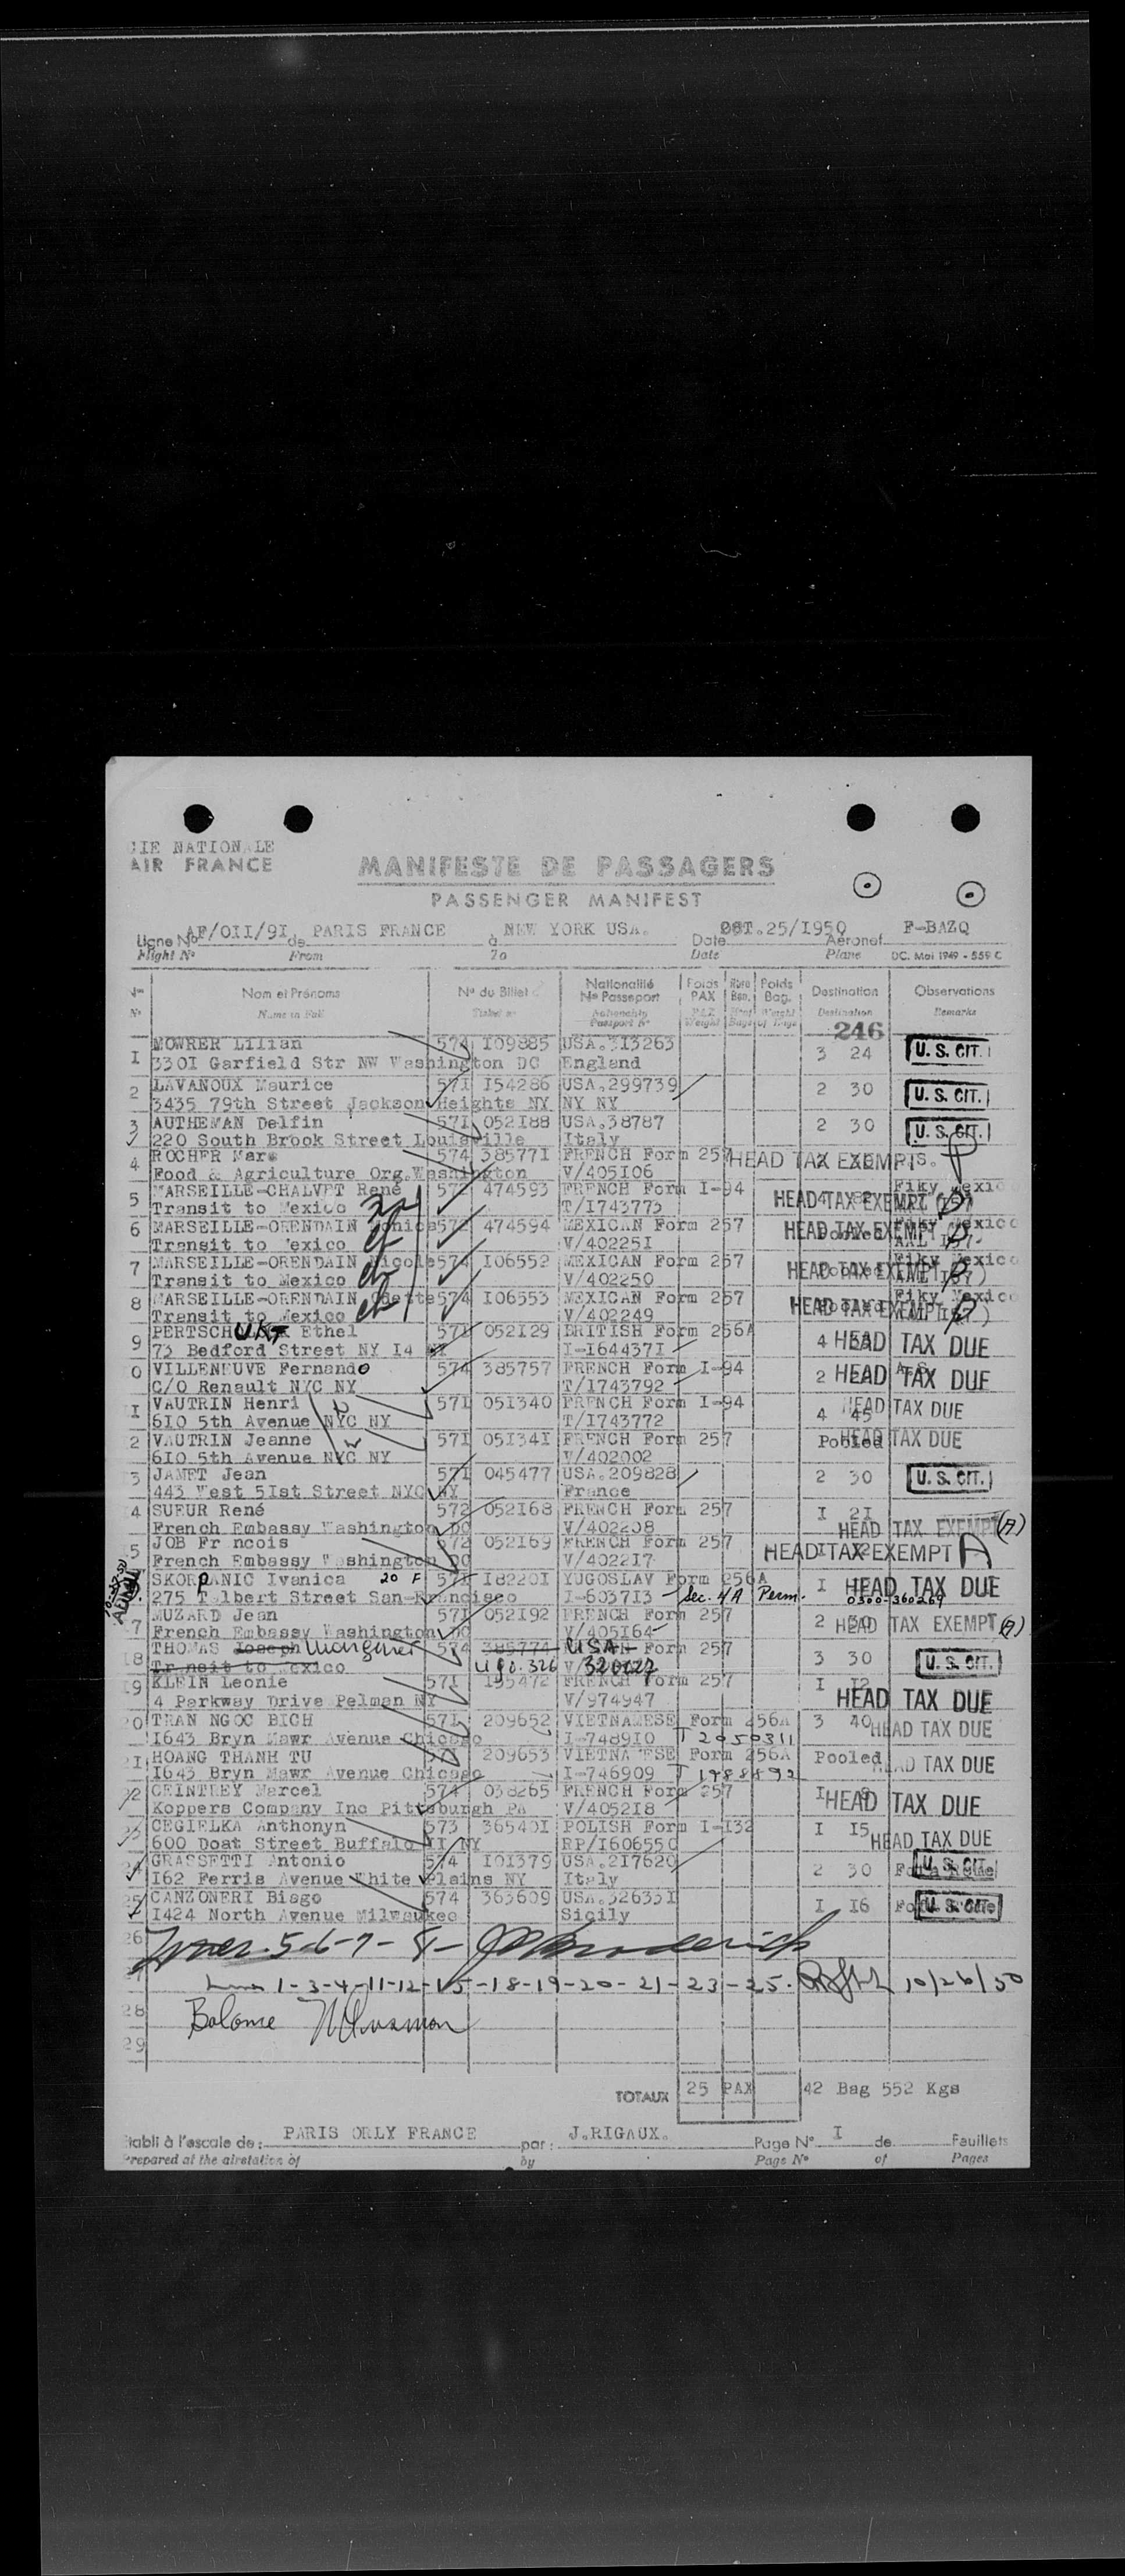 CIE NATIONALE
AIR FRANCE
MANIFESTE DE PASSAGERS
PASSENGER MANIFEST
Ligne No AF/OII/9I de PARIS FRANCE à NEW YORK USA. Date OCT.25/I950 Aéronef F-BAZQ
Flight No From To Date Plane DC. Mai 1949 - 559 C
Nom et Prénoms No du Billet Nationalité No Passeport Poids PAX Poids Bag. Destination Observations
Name in Full Destination Remarks
246
I MOWRER Lilian 574 I09885 USA.3I3263 3 24 U. S. CIT.
330I Garfield Str NW Washington DC England
2 LAVANOUX Maurice 57I I54286 USA.299739 2 30 U. S. CIT.
3435 79th Street Jackson Heights NY NY NY
3 AUTHEMAN Delfin 57I 052I88 USA.38787 2 30 U. S. CIT.
220 South Brook Street Louisville Italy
4 ROCHER Marc 574 38577I FRENCH Form 257 HEAD TAX EXEMPT
Food & Agriculture Org.Washington V/405I06
5 MARSEILLE-CHALVET René 572 474593 FRENCH Form I-94 HEAD TAX EXEMPT Fiky Mexico
Transit to Mexico T/I743775
6 MARSEILLE-ORENDAIN Monica 572 474594 MEXICAN Form 257 Pooled HEAD TAX EXEMPT Fiky Mexico
Transit to Mexico V/40225I
7 MARSEILLE-ORENDAIN Nicole 574 I06552 MEXICAN Form 257 Pooled HEAD TAX EXEMPT Fiky Mexico
Transit to Mexico V/402250
8 MARSEILLE-ORENDAIN Odette 574 I06553 MEXICAN Form 257 Pooled HEAD TAX EXEMPT Fiky Mexico
Transit to Mexico V/402249
9 PERTSCHUKT Ethel 57I 052I29 BRITISH Form 256A 4 HEAD TAX DUE
73 Bedford Street NY I4 I-I64437I
0 VILLENEUVE Fernando 574 385757 FRENCH Form I-94 2 HEAD TAX DUE
C/O Renault NYC NY T/I743792
I VAUTRIN Henri 57I 05I340 FRENCH Form I-94 4 45 HEAD TAX DUE
6I0 5th Avenue NYC NY T/I743772
2 VAUTRIN Jeanne 57I 05I34I FRENCH Form 257 Pooled HEAD TAX DUE
6I0 5th Avenue NYC NY V/402002
3 JAMET Jean 57I 045477 USA.209828 2 30 U. S. CIT.
443 West 5Ist Street NYC NY France
4 SUEUR René 572 052I68 FRENCH Form 257 I 2I HEAD TAX EXEMPT (A)
French Embassy Washington DC V/402208
5 JOB Francois 572 052I69 FRENCH Form 257 HEAD TAX EXEMPT A
French Embassy Washington DC V/4022I7
SKORPANIC Ivanica 20 F 57I I8220I YUGOSLAV Form 256A I HEAD TAX DUE
275 Talbert Street San-Francisco I-6037I3 - Sec. 4A Perm. 0300-360269
7 MUZARD Jean 57I 052I92 FRENCH Form 257 2 HEAD TAX EXEMPT (A)
French Embassy Washington DC V/405I64
18 THOMAS Joseph 574 385774 USA Form 257 3 30 U. S. CIT.
Transit to Mexico 320027
I9 KLEIN Leonie 57I I95472 FRENCH Form 257 I I2 HEAD TAX DUE
4 Parkway Drive Pelman NY V/974947
20 TRAN NGOC BICH 57I 209652 VIETNAMESE Form 256A 3 40 HEAD TAX DUE
I643 Bryn Mawr Avenue Chicago I-7489I0 T 2050311
2I HOANG THANH TU 57I 209653 VIETNAMESE Form 256A Pooled HEAD TAX DUE
I643 Bryn Mawr Avenue Chicago I-746909 T 1988892
22 CEINTREY Marcel 574 038265 FRENCH Form 257 I HEAD TAX DUE
Koppers Company Inc Pittsburgh PA V/4052I8
23 CEGIELKA Anthonyn 573 36540I POLISH Form I-I32 I I5 HEAD TAX DUE
600 Doat Street Buffalo II NY RP/I606550
24 GRASSETTI Antonio 574 I0I379 USA.2I7620 2 30 U. S. CIT.
I62 Ferris Avenue White Plains NY Italy
25 CANZONERI Biago 574 363609 USA.32633I I I6 U. S. CIT.
I424 North Avenue Milwaukee Sicily
26 Lines 5-6-7-8-
Lines 1-3-4-11-12-15-18-19-20-21-23-25. 10/26/50
28 Balance
29
TOTAUX 25 PAX 42 Bag 552 Kgs
Etabli à l'escale de : PARIS ORLY FRANCE par : J.RIGAUX. Page No I de Feuillets
Prepared at the airstation of by Page No of Pages